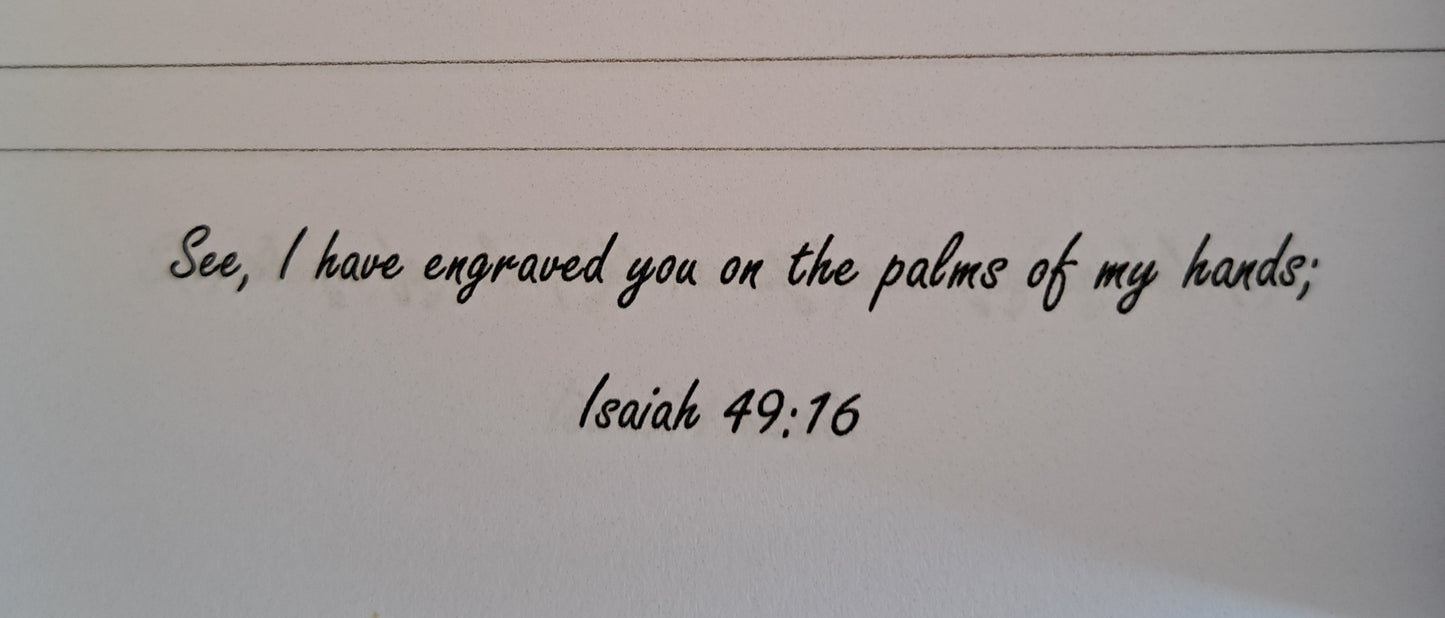 See, I have engraved you on the palms of my hands;
Isaiah 49:16